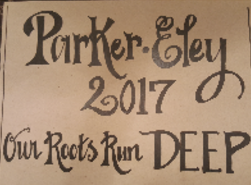 Parker·Eley
2017
Our Roots Run DEEP